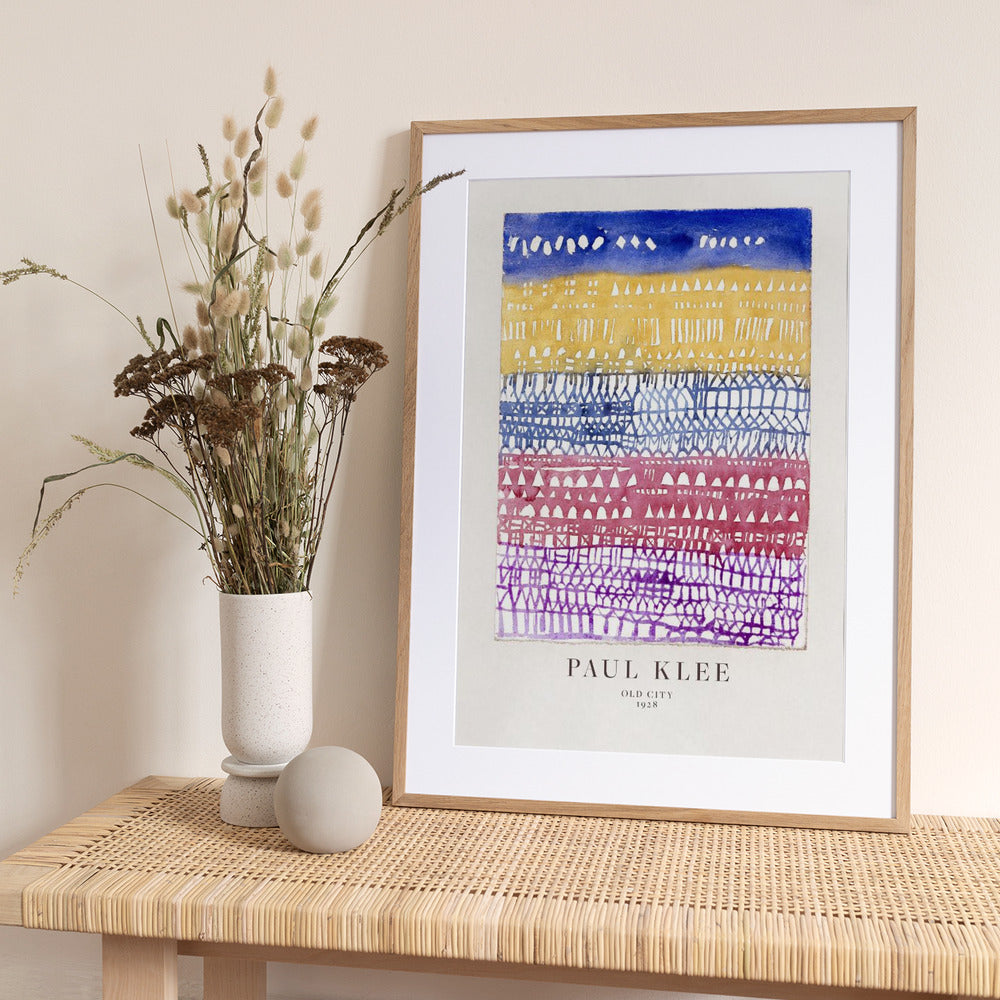 PAUL KLEE
OLD CITY
1928